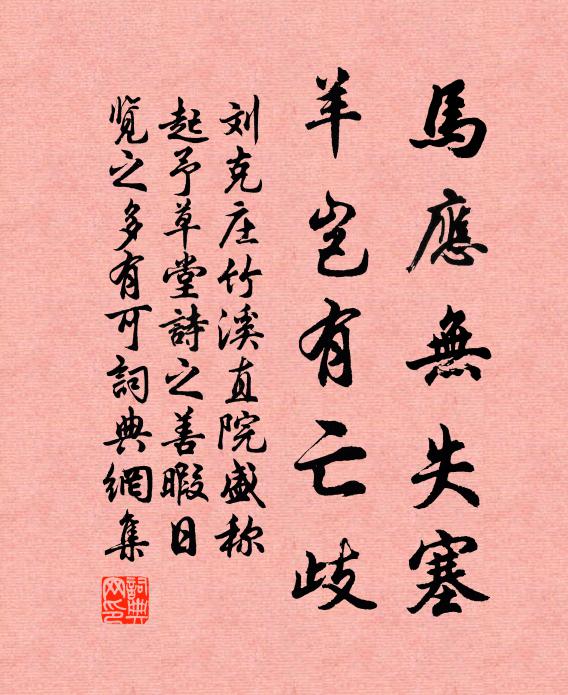 馬應無失塞
羊岂有亡歧
刘克庄竹溪直院盛称
起予草堂詩之善暇日
览之多有可詞典網集
詞典网印